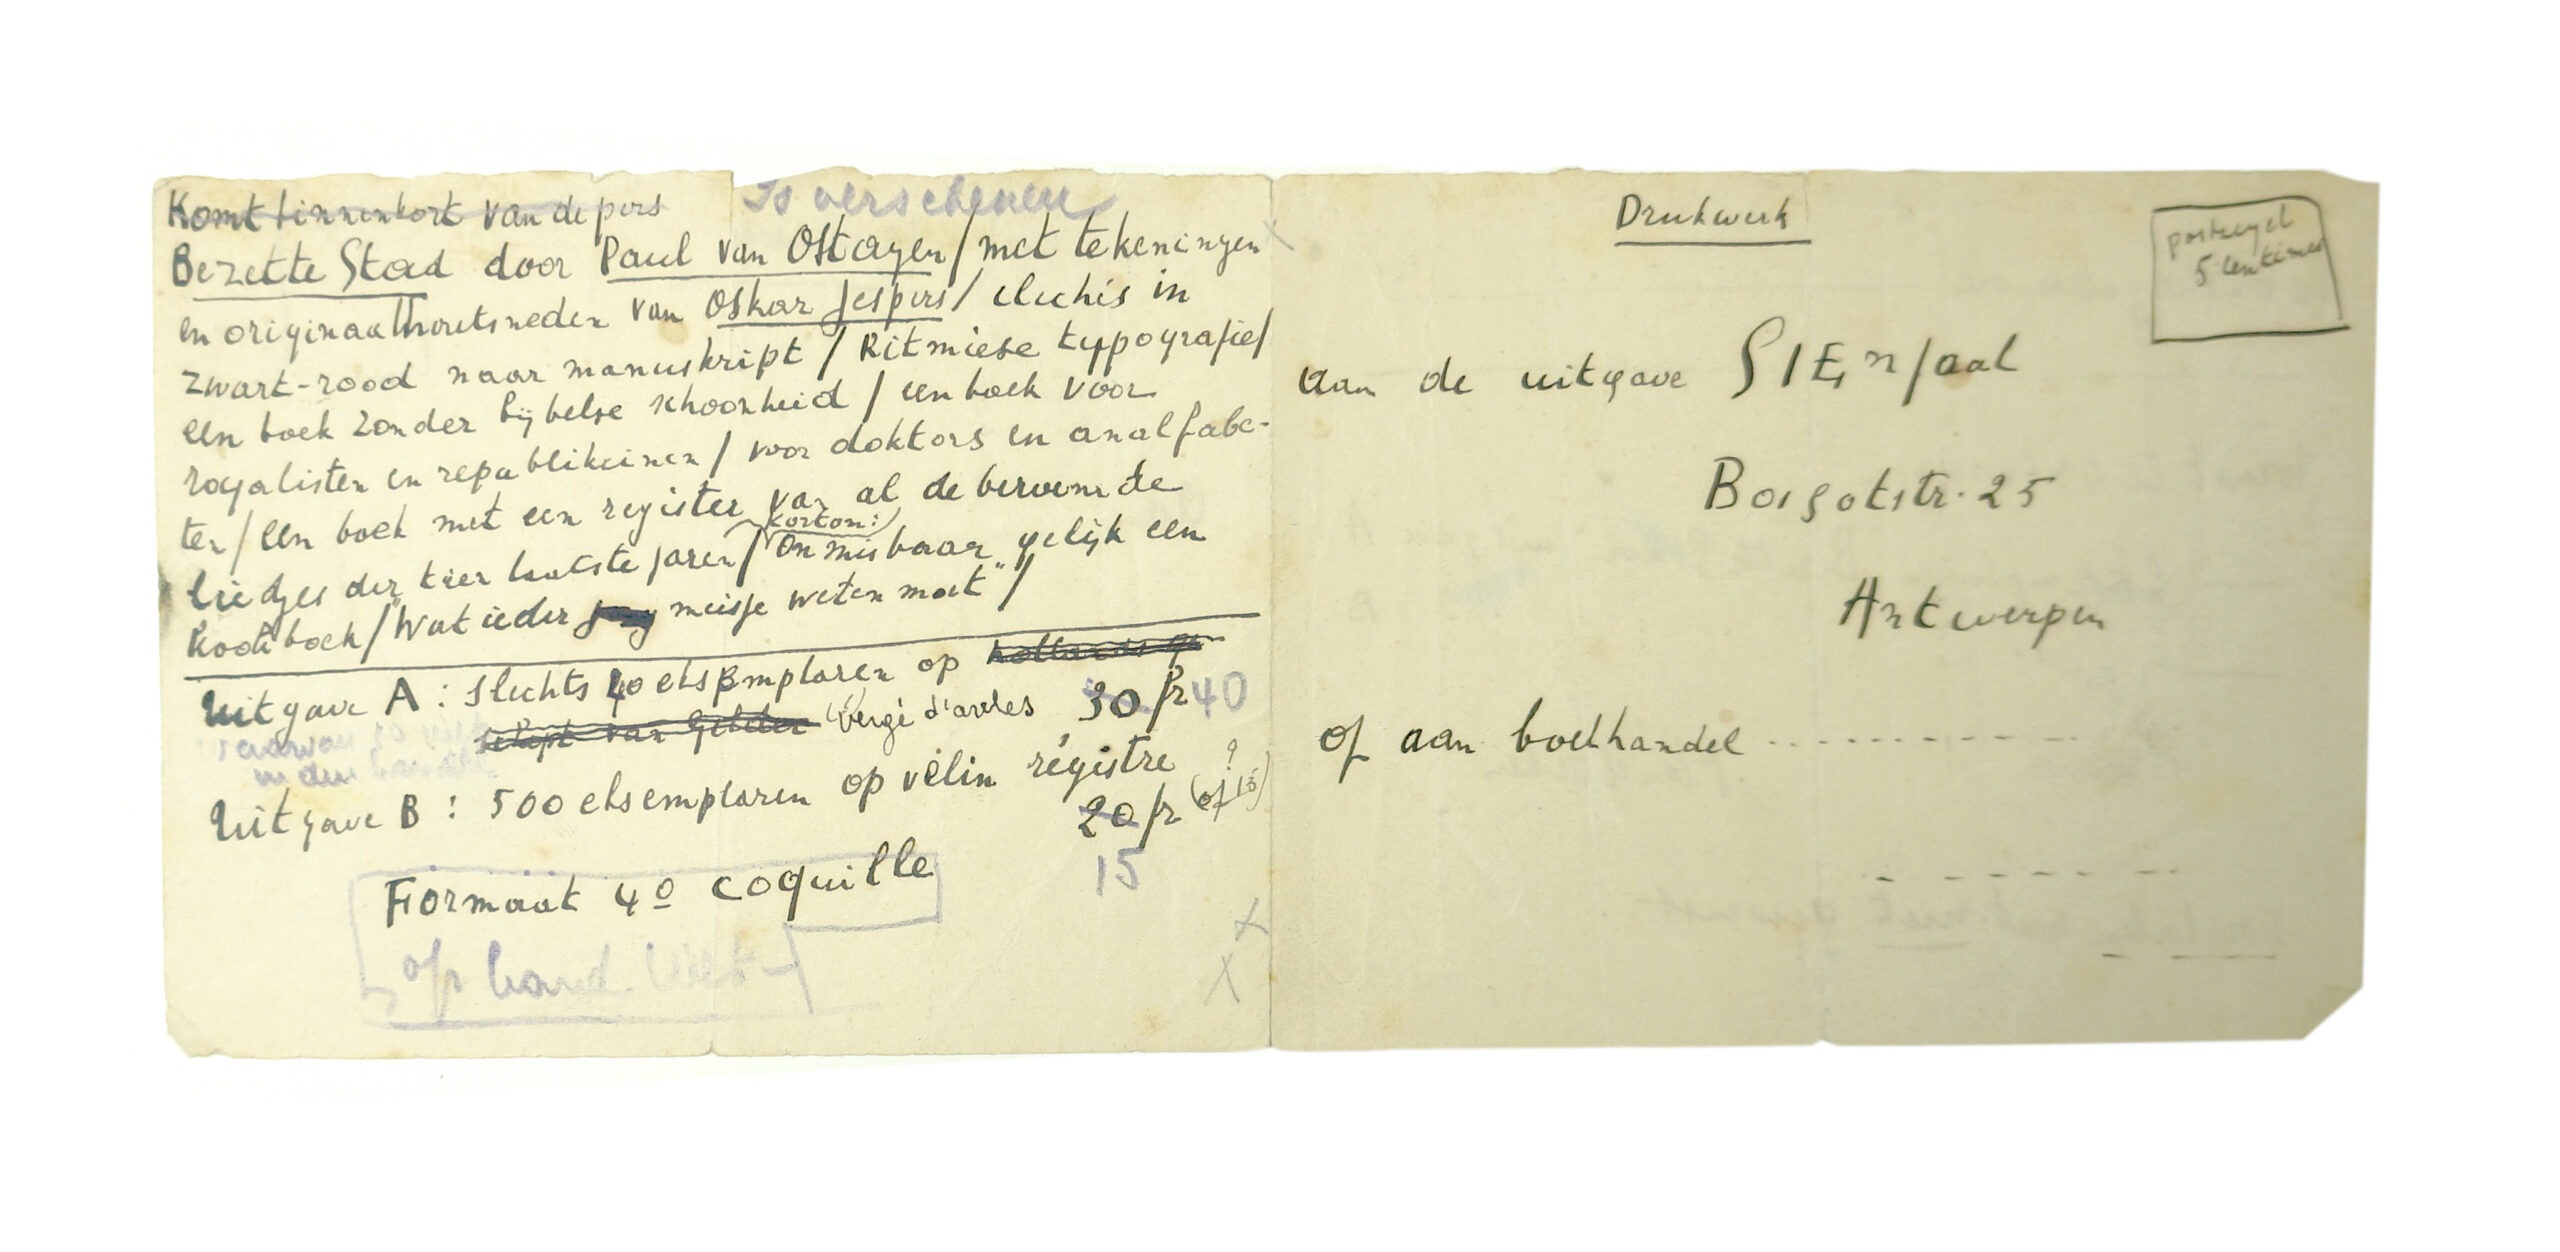 Komt binnenkort van de pers
Is verschenen
Bezette Stad door Paul van Ostayen / met tekeningen
en originaalhoutsneden van Oskar Jespers / clichés in
zwart-rood naar manuskript / Ritmiese typografie /
een boek zonder bijbelse schoonheid / een boek voor
royalisten en republikeinen / voor doktors en analfabe-
ten / een boek met een register van al de beroemde
liedjes der vier laatste jaren / kortom: Onmisbaar gelijk een
kookboek / "Wat ieder jong meisje weten moet" /
Uitgave A : slechts 40 eksemplaren op hollands
van Gelder Vergé d'arches 30 fr 40
waarvan
in den handel
Uitgave B : 500 eksemplaren op vélin régistre ?
20 fr (of 15)
15
Formaat 4º coquille
op hand
Drukwerk
postzegel
5 centimes
aan de uitgave SIEnjaal
Borgotstr. 25
Antwerpen
of aan boekhandel ............